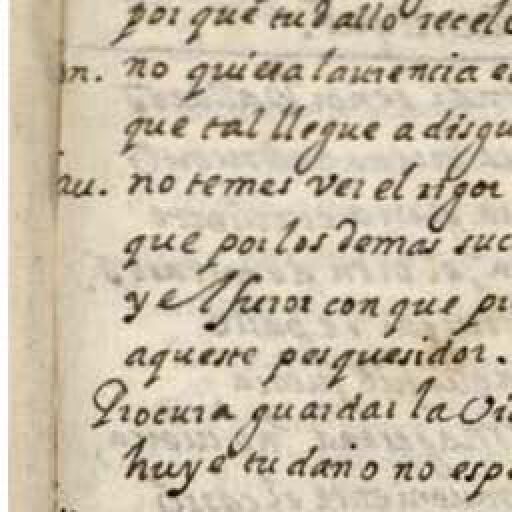 por que tu dallo recel
n. no quiera laurencia e
que tal llegue a disgu
au. no temes ver el rigor
que por los demas suc
y el furor con que pr
aqueste pesquesidor.
Procura guardar la vi
huye tu daño no esp